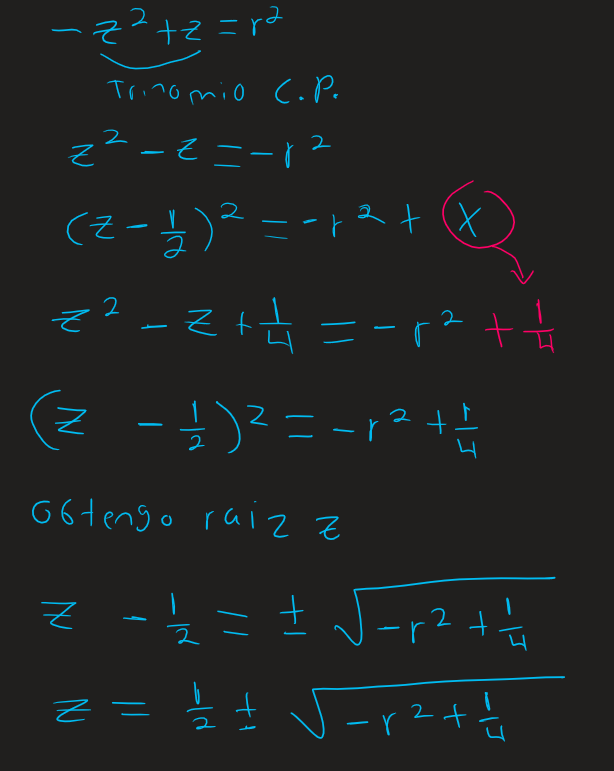 -z²+z=r²
Trinomio C.P.
z²-z=-r²
(z-1/2)²=-r²+x
z²-z+1/4=-r²+1/4
(z-1/2)²=-r²+1/4
Obtengo raiz z
z-1/2=±√(-r²+1/4)
z=1/2±√(-r²+1/4)